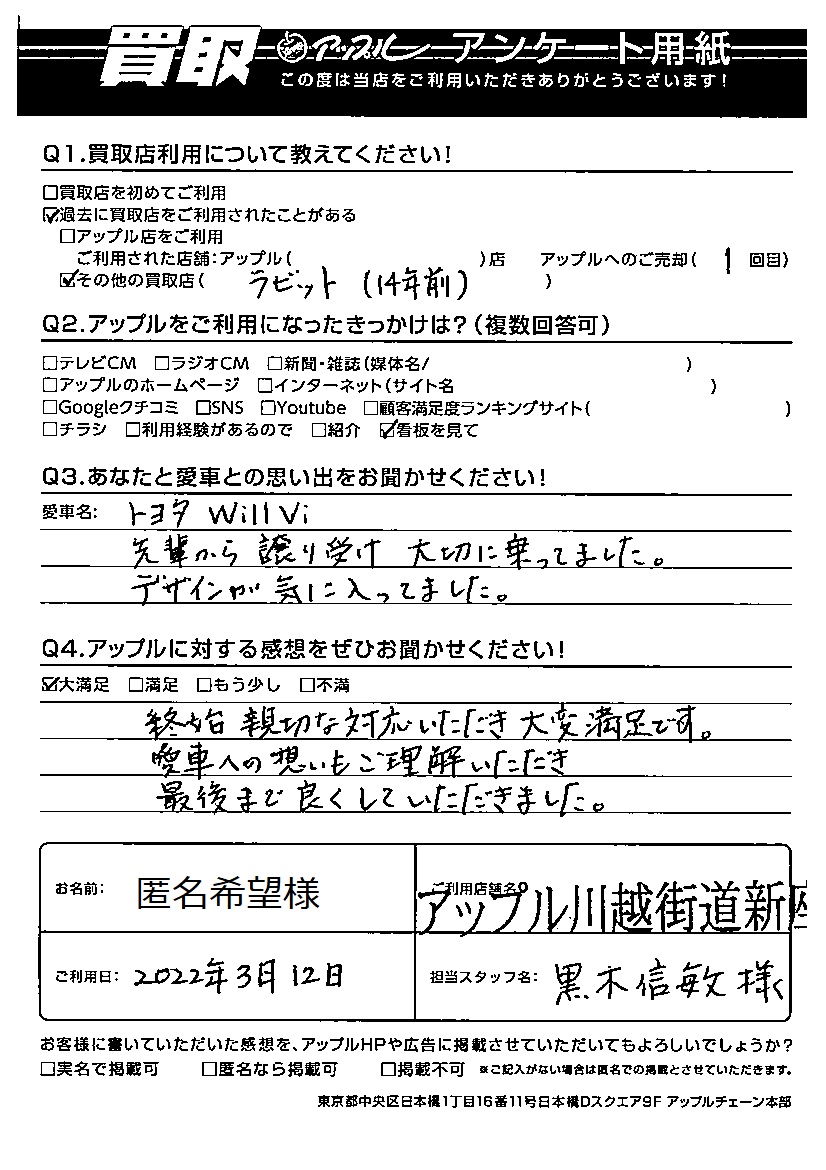 買取 アップル アンケート用紙
この度は当店をご利用いただきありがとうございます!
Q1.買取店利用について教えてください!
□買取店を初めてご利用
☑過去に買取店をご利用されたことがある
□アップル店をご利用
ご利用された店舗:アップル( )店 アップルへのご売却( 1 回目)
☑その他の買取店( ラビット (14年前) )
Q2.アップルをご利用になったきっかけは?(複数回答可)
□テレビCM □ラジオCM □新聞・雑誌(媒体名/ )
□アップルのホームページ □インターネット(サイト名 )
□Googleクチコミ □SNS □Youtube □顧客満足度ランキングサイト( )
□チラシ □利用経験があるので □紹介 ☑看板を見て
Q3.あなたと愛車との思い出をお聞かせください!
愛車名: トヨタ Will Vi
先輩から譲り受け 大切に乗ってました。
デザインが気に入ってました。
Q4.アップルに対する感想をぜひお聞かせください!
☑大満足 □満足 □もう少し □不満
終始親切な対応いただき大変満足です。
愛車への想いもご理解いただき
最後まで良くしていただきました。
お名前: 匿名希望様
ご利用店舗名
アップル川越街道新座
ご利用日: 2022年3月12日
担当スタッフ名: 黒木信敏様
お客様に書いていただいた感想を、アップルHPや広告に掲載させていただいてもよろしいでしょうか?
□実名で掲載可 □匿名なら掲載可 □掲載不可 ※ご記入がない場合は匿名での掲載とさせていただきます。
東京都中央区日本橋1丁目16番11号日本橋Dスクエア9F アップルチェーン本部